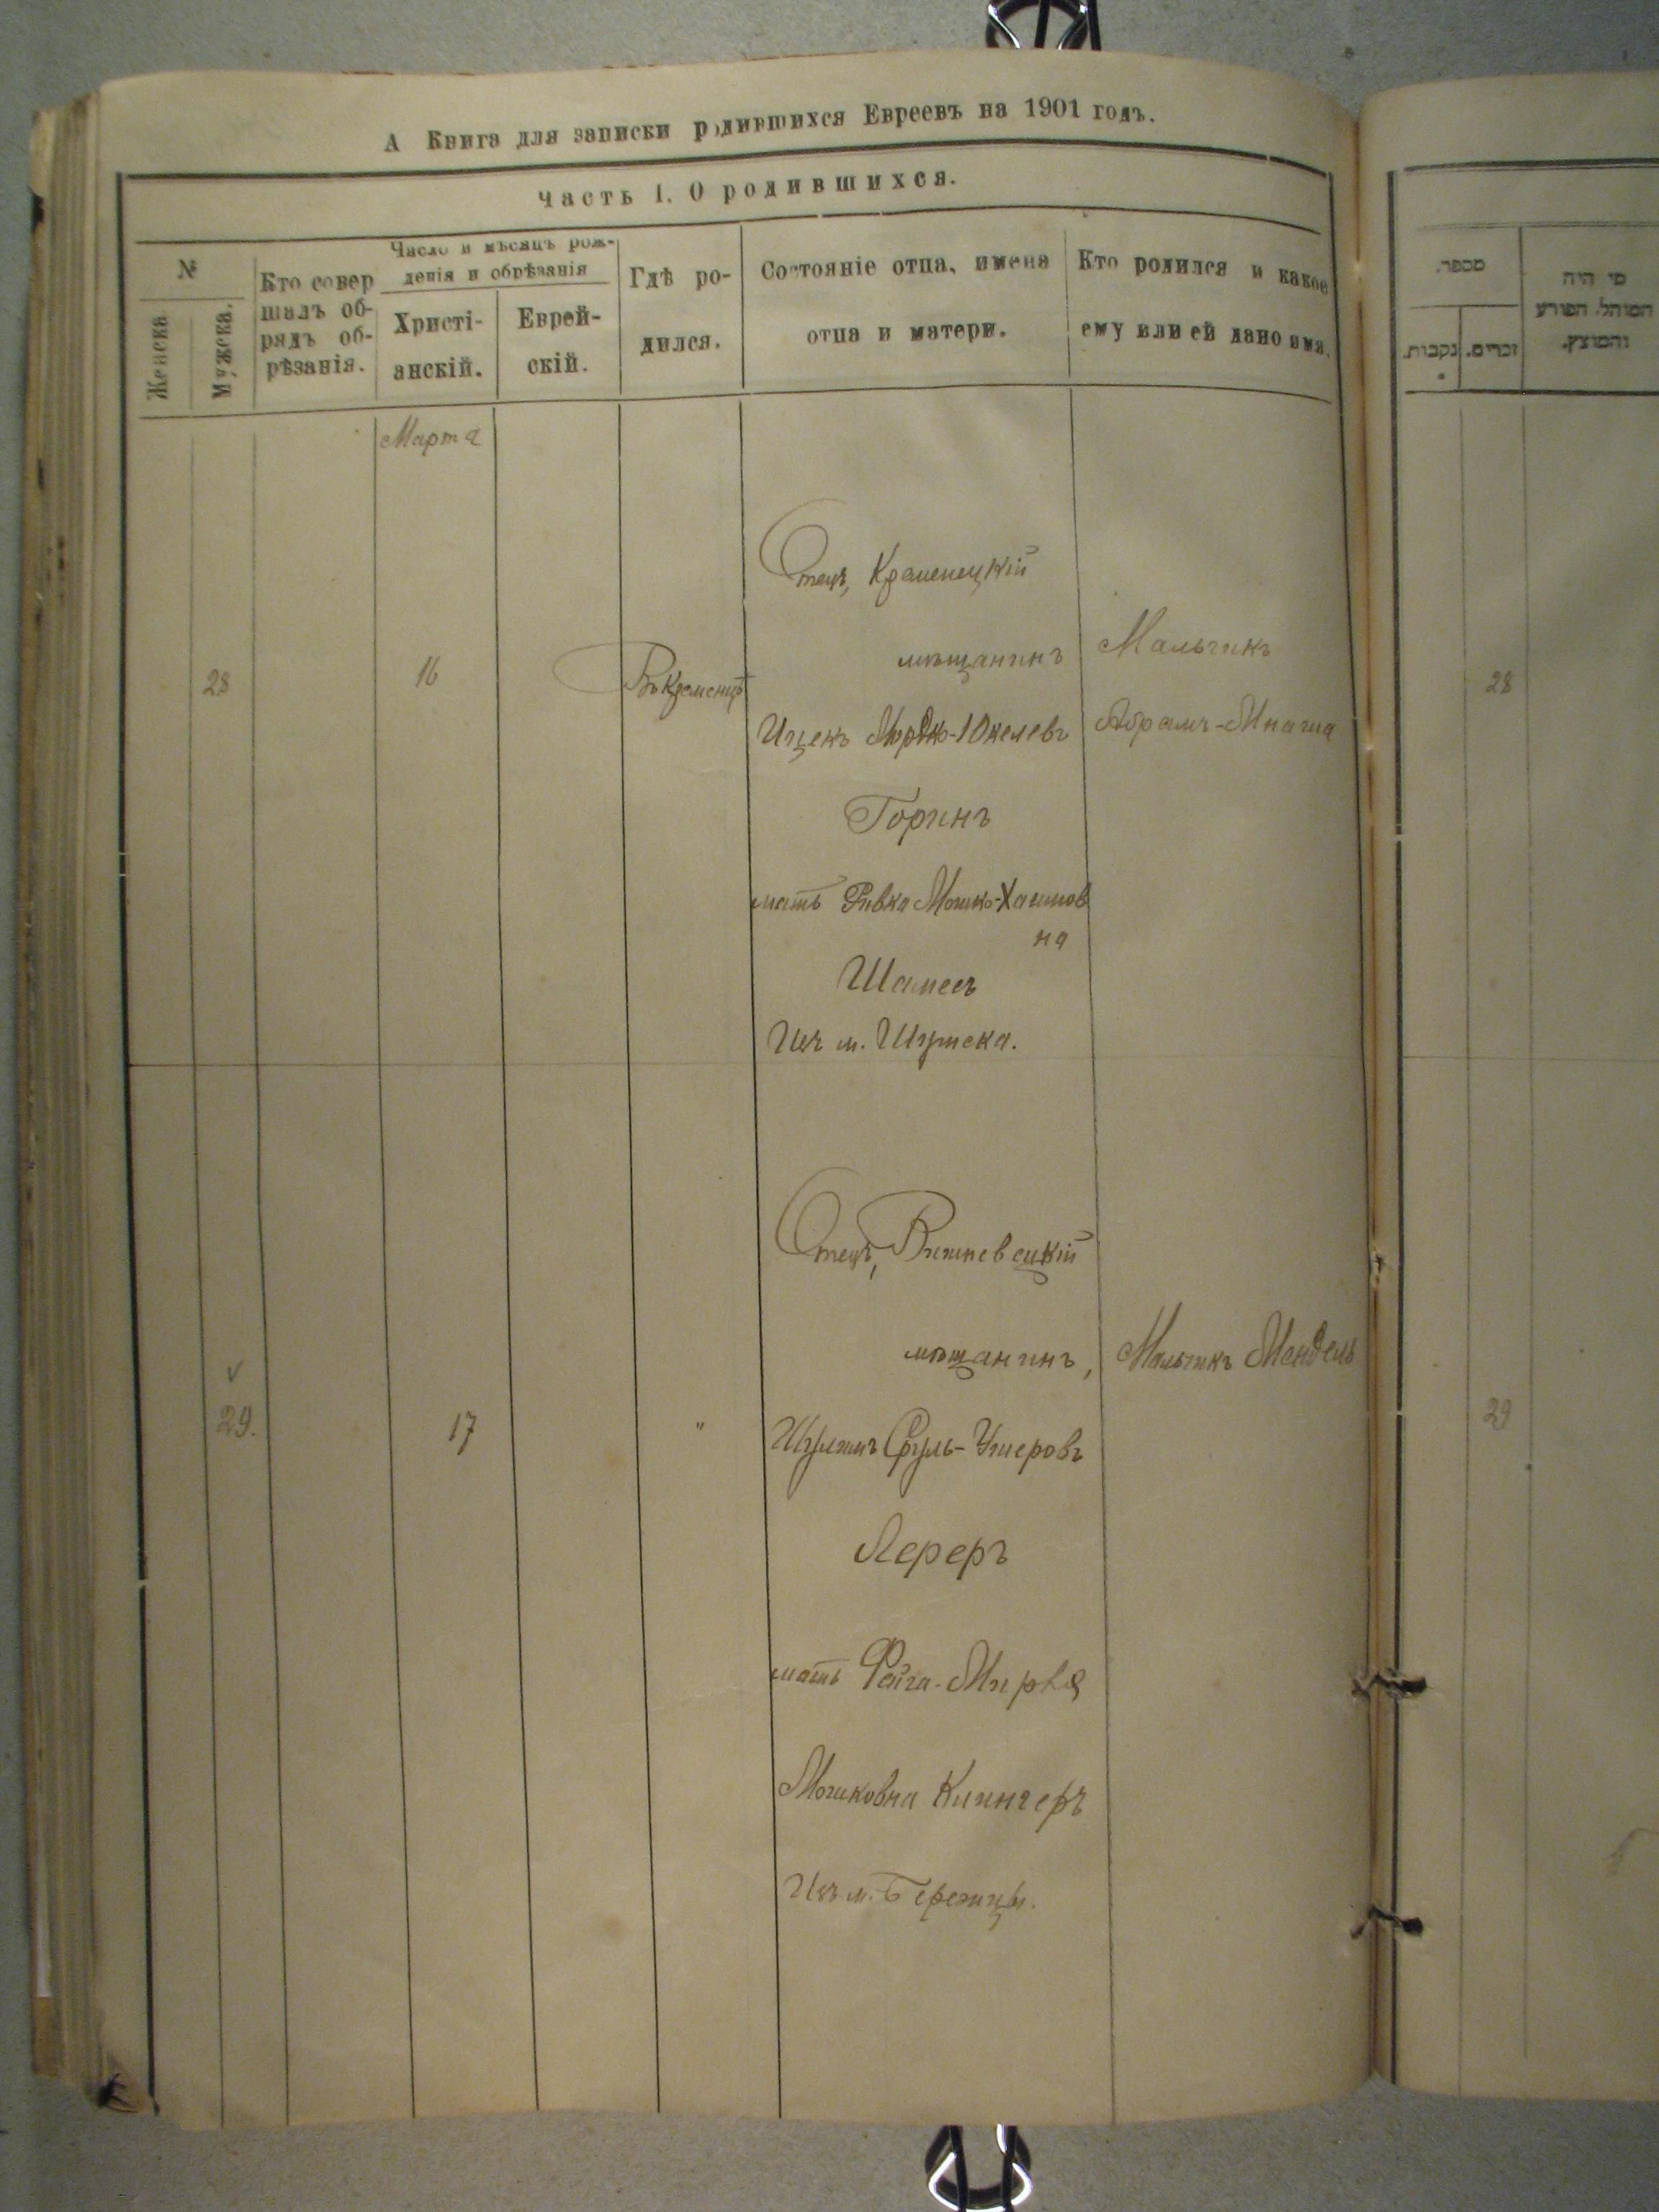 А Книга для записки родившихся Евреевъ на 1901 годъ.
Часть I. О родившихся.
№
Женска.
Мужска.
Кто совер
шалъ об-
рядъ об-
рѣзанія.
Число и мѣсяцъ рож-
денія и обрѣзанія
Христі-
анскій.
Еврей-
скій.
Гдѣ ро-
дился.
Состояніе отца, имена
отца и матери.
Кто родился и какое
ему или ей дано имя.
Марта
28
16
Въ Кременцѣ
Отецъ, Кременецкій
мѣщанинъ
Ицекъ Мордко-Юкелевъ
Горинъ
мать Ривка Мошко-Хаимов
на
Шамесъ
Изъ м. Шумска.
Мальчикъ
Абрамъ
29.
17
"
Отецъ, Вишневецкій
мѣщанинъ,
Шулимъ Сруль-Ушеровъ
Лереръ
мать Файга-Мирля
Мошковна
Изъ м. Бережцы.
Мальчикъ Мендель
מספר.
נקבות.
זכרים.
מי היה
המוהל, הפורע
והמוצץ.
28
29